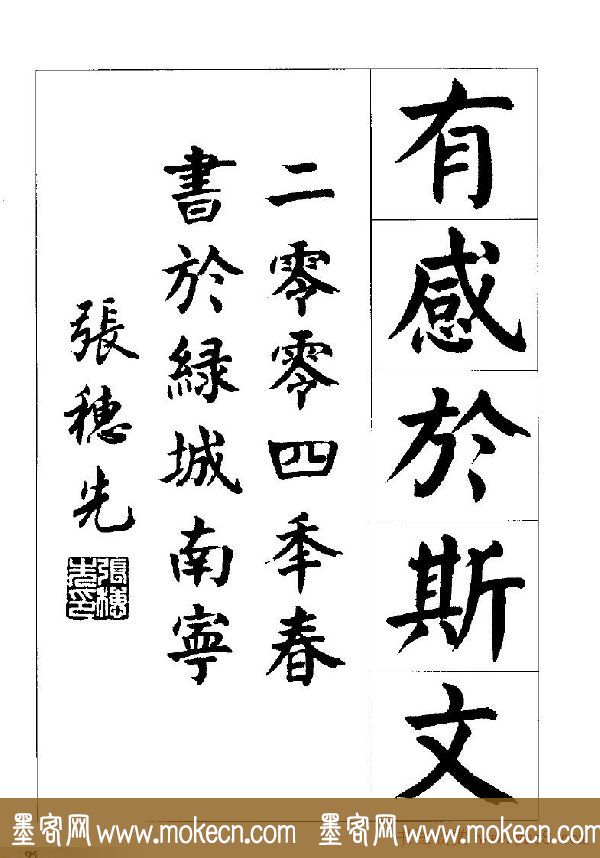 有感於斯文
二零零四秊春
書於緑城南寧
張穗先
張穗先印
墨客网 www.mokecn.com 墨客网 www.mokecn.com